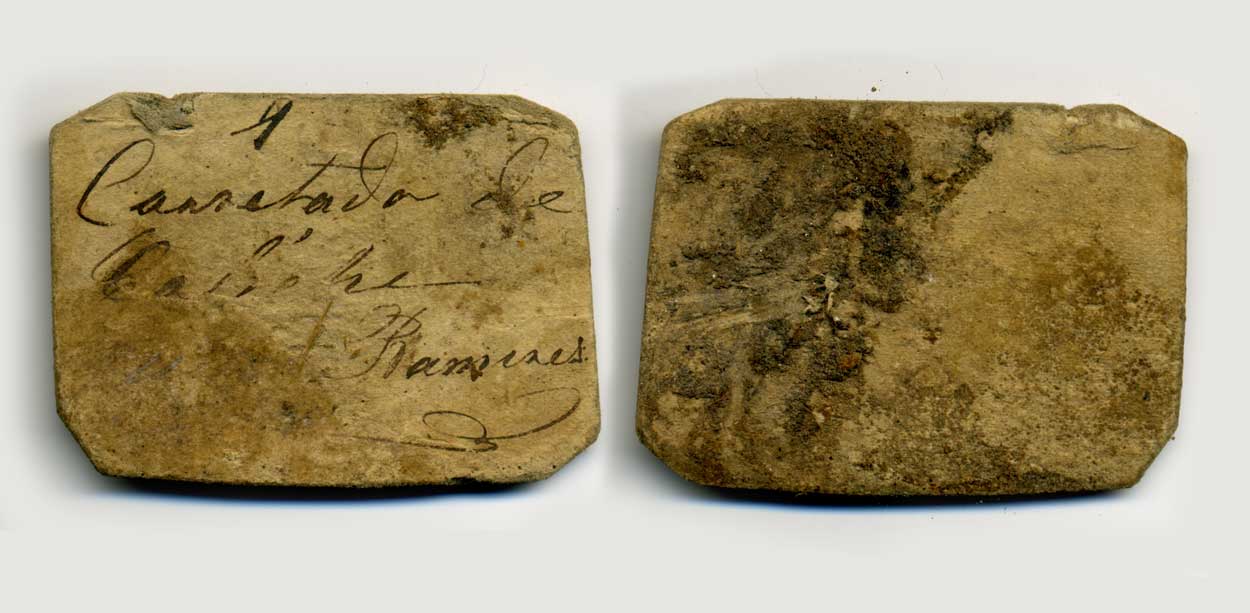 1
Carretada de
Caliche
Ramires